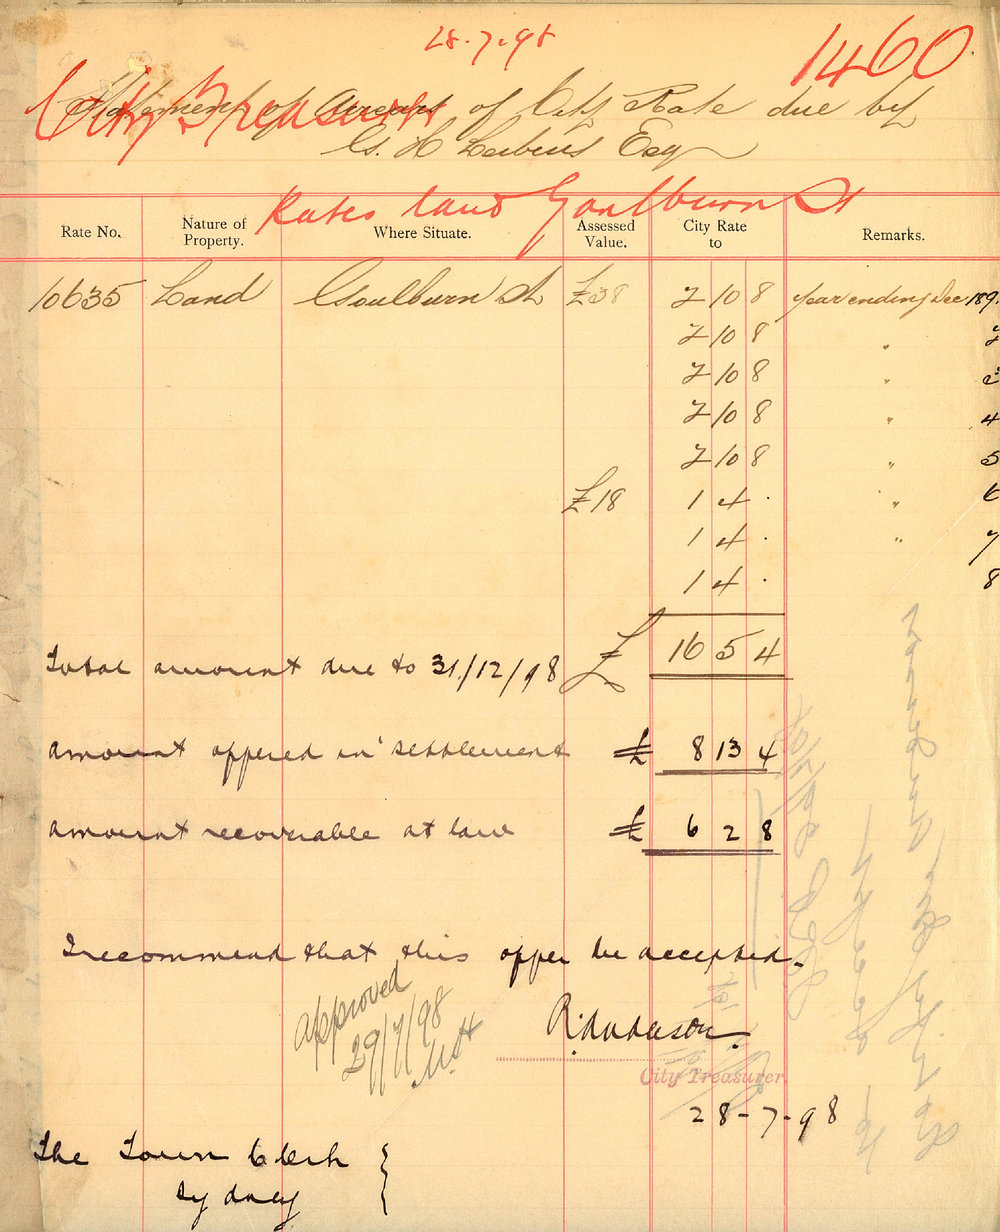 28.7.98
1460
City Treasurer
Statement of Arrears of City Rate due by
G. H. Leibius Esq
Rates land Goulburn St
Rate No. Nature of Property. Where Situate. Assessed Value. City Rate to Remarks.
10635 Land Goulburn St £38 2 10 8 year ending Dec 189
2 10 8 " 2
2 10 8 " 3
2 10 8 " 4
2 10 8 " 5
£18 1 4 . " 6
1 4 . " 7
1 4 . 8
Total amount due to 31/12/98 £ 16 5 4
amount offered in settlement £ 8 13 4
amount recoverable at law £ 6 2 8
I recommend that this offer be accepted.
approved
29/7/98
City Treasurer
28-7-98
The Town Clerk }
Sydney